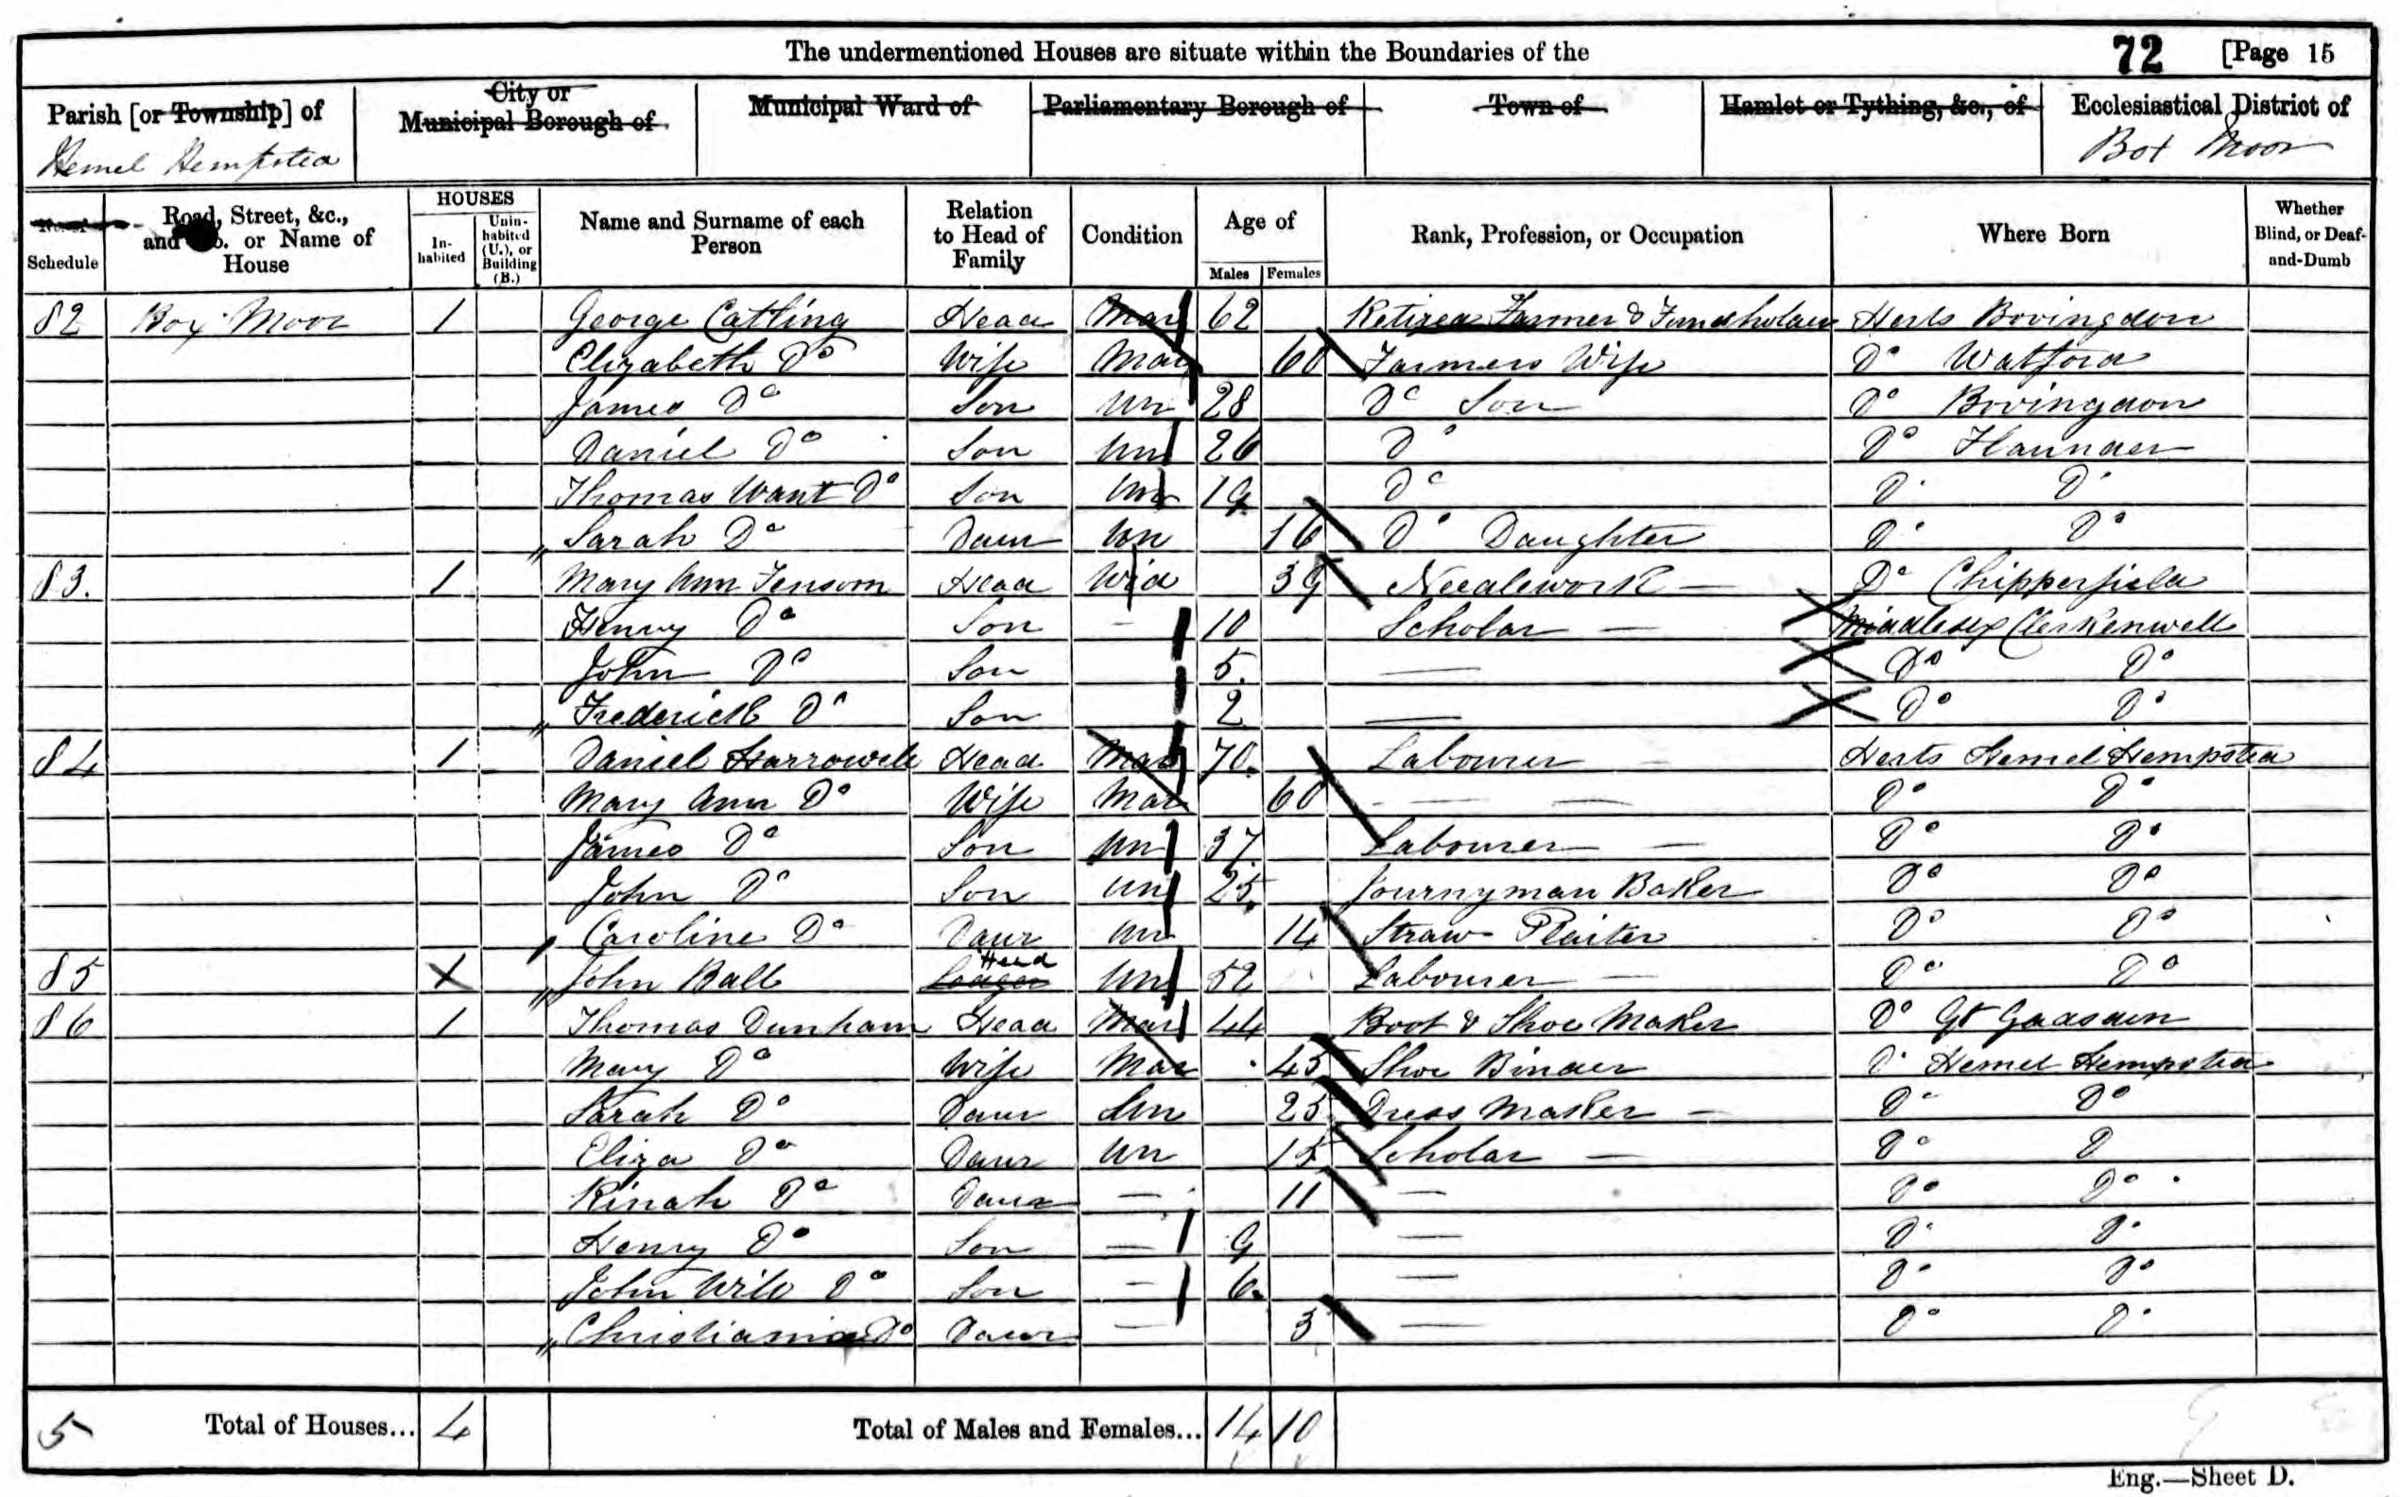 The undermentioned Houses are situate within the Boundaries of the 72 [Page 15
Parish [or Township] of City or Municipal Borough of Municipal Ward of Parliamentary Borough of Town of Hamlet or Tything, &c., of Ecclesiastical District of
Hemel Hempsted Box Moor
No. of Schedule Road, Street, &c., and No. or Name of House HOUSES Inhabited Uninhabited (U.), or Building (B.) Name and Surname of each Person Relation to Head of Family Condition Age of Males Females Rank, Profession, or Occupation Where Born Whether Blind, or Deaf-and-Dumb
82 Box Moor 1 George Catling Head Mar 62 Retired Farmer & Fundholder Herts Bovingdon
Elizabeth Do Wife Mar 60 Farmers Wife Do Watford
James Do Son Un 28 Do Son Do Bovingdon
Daniel Do Son Un 26 Do Do Flaunden
Thomas Want Do Son Un 19 Do Do Do
Sarah Do Daur Un 16 Do Daughter Do Do
83. 1 Mary Ann Fensom Head Wid 39 Needlework — Do Chipperfield
Henry Do Son - 10 Scholar — Middlesex Clerkenwell
John Do Son 5 — Do Do
Frederick Do Son 2 — Do Do
84 1 Daniel Harrowell Head Mar 70 Labourer - Herts Hemel Hempsted
Mary Ann Do Wife Mar 60 — — Do Do
James Do Son Un 37 Labourer — Do Do
John Do Son Un 25 Journyman Baker Do Do
Caroline Do Daur Un 14 Straw Plaiter Do Do
85 1 John Ball Lodger Head Un 52 Labourer — Do Do
86 1 Thomas Dunham Head Mar 44 Boot & Shoe Maker Do Gt Gadsden
Mary Do Wife Mar 45 Shoe Binder Do Hemel Hempsted
Sarah Do Daur Un 25 Dress Maker — Do Do
Eliza Do Daur Un 15 Scholar — Do D
Kinah Do Daur — 11 — Do Do
Henry Do Son — 9 — Do Do
John Will Do Son — 6 — Do Do
Christiania Do Daur — 3 — Do Do
5 Total of Houses... 4 Total of Males and Females... 14 10
Eng.—Sheet D.